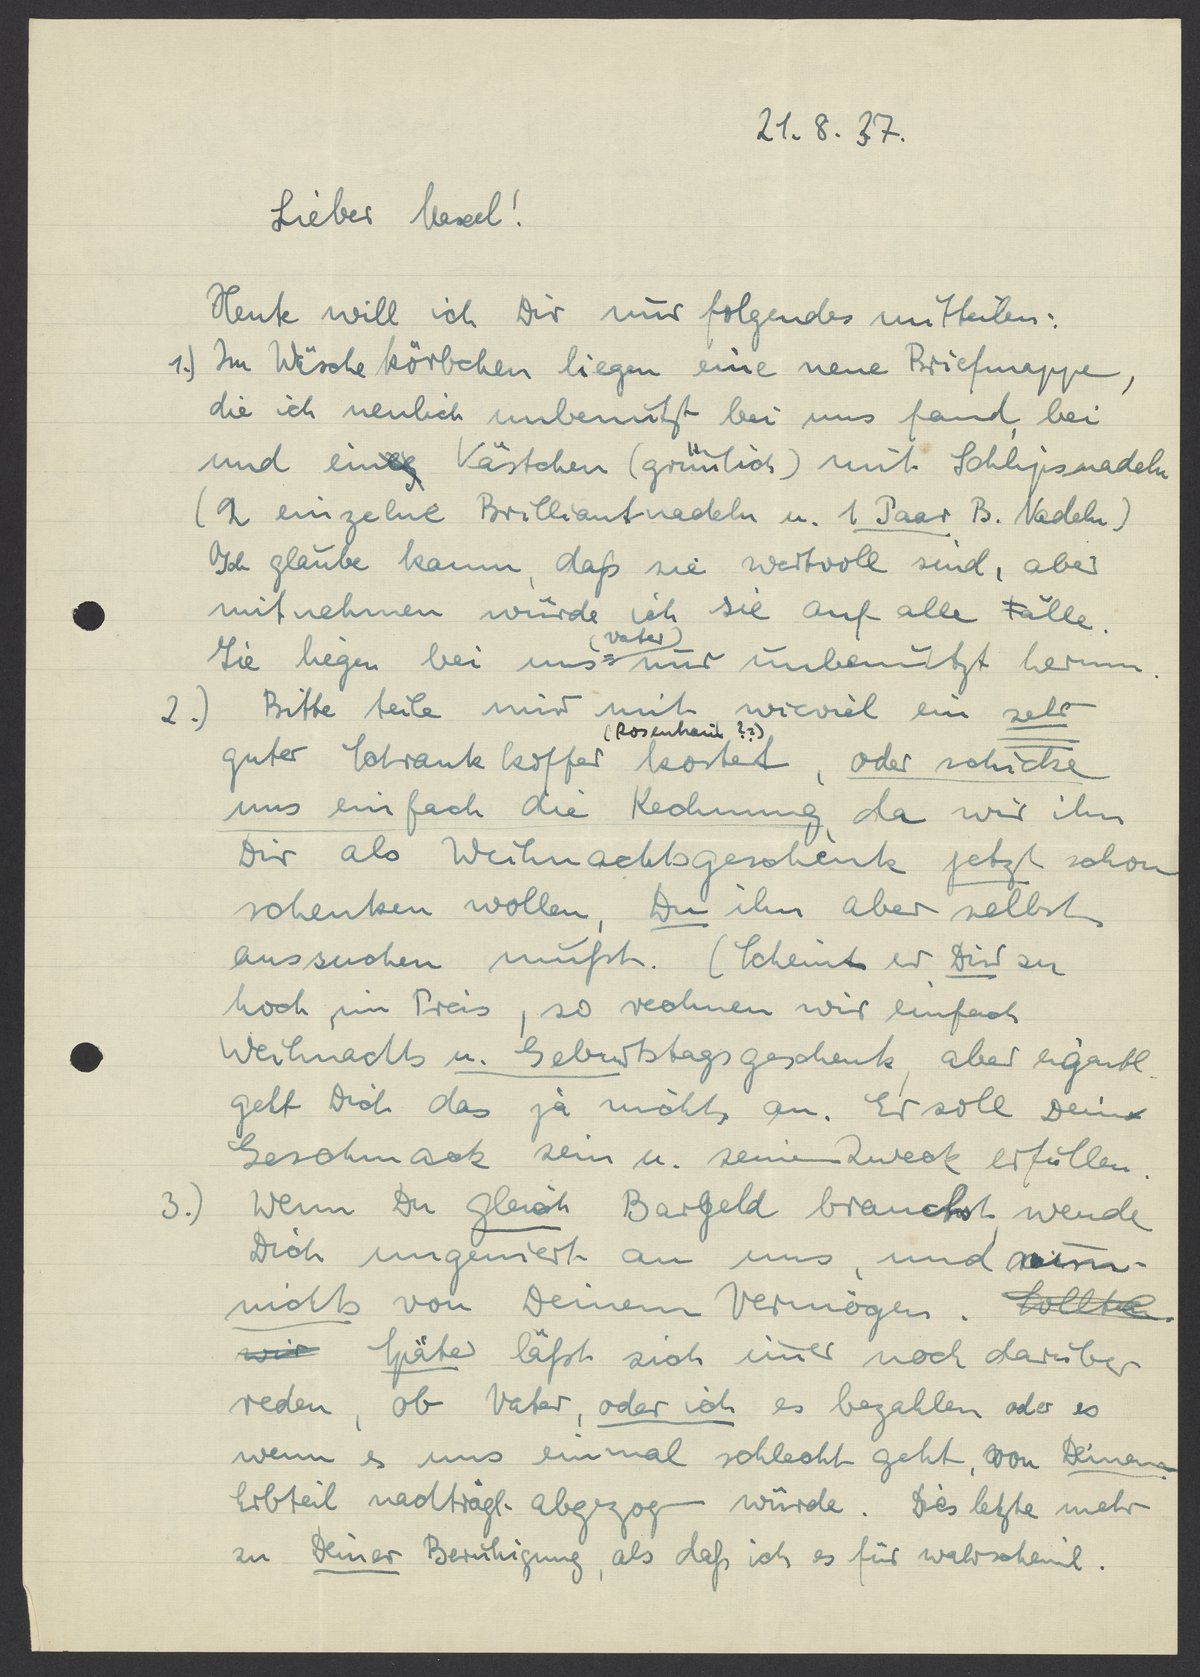 21. 8. 37.
Lieber Maxel!
Heute will ich Dir nur folgendes mitteilen:
1.) Im Wäschekörbchen liegen eine neue Briefmappe,
die ich neulich unbenutzt bei uns fand, bei
und ein Kästchen (grünlich) mit Schlipsnadeln
(2 einzelne Brilliantnadeln u. 1 Paar B. Nadeln)
Ich glaube kaum, daß sie wertvoll sind, aber
mitnehmen würde ich sie auf alle Fälle.
(Vater)
Sie liegen bei uns nur unbenutzt herum.
2.) Bitte teile mir mit wieviel ein sehr
(Rosenhain ??)
guter Schrankkoffer kostet, oder schicke
uns einfach die Rechnung, da wir ihn
Dir als Weihnachtsgeschenk jetzt schon
schenken wollen, Du ihn aber selbst
aussuchen mußt. (Scheint er Dir zu
hoch im Preis, so rechnen wir einfach
Weihnachts u. Geburtstagsgeschenk, aber eigentl.
geht Dich das ja nichts an. Er soll Dein
Geschmack sein u. seinen Zweck erfüllen.
3.) Wenn Du gleich Bargeld brauchst, wende
Dich ungeniert an uns, und nimm
nichts von Deinem Vermögen. Sollten
wir Später läßt sich im̄er noch darüber
reden, ob Vater, oder ich es bezahlen oder es
wenn es uns einmal schlecht geht, von Deinem
Erbteil nachträgl. abgezog würde. Dies letzte mehr
zu Deiner Beruhigung, als daß ich es für wahrscheinl.